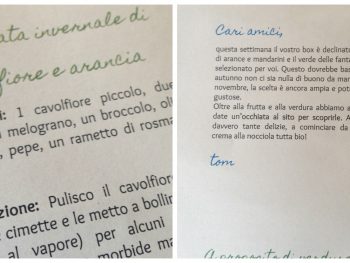 ata invernale di
fiore e arancia
i: 1 cavolfiore piccolo, due
melograno, un broccolo, oli
, pepe, un rametto di rosma
zione: Pulisco il cavolfiore
cimette e le metto a bollir
al vapore) per alcuni
morbide ma
Cari amici,
questa settimana il vostro box è declinato
di arance e mandarini e il verde delle fanta
selezionato per voi. Questo dovrebbe bas
autunno non ci sia nulla di buono da man
novembre, la scelta è ancora ampia e pot
gustose.
Oltre alla frutta e alla verdura abbiamo a
date un'occhiata al sito per scoprirle. A
davvero tante delizie, a cominciare da
crema alla nocciola tutta bio!
tom
A proposito di verdu